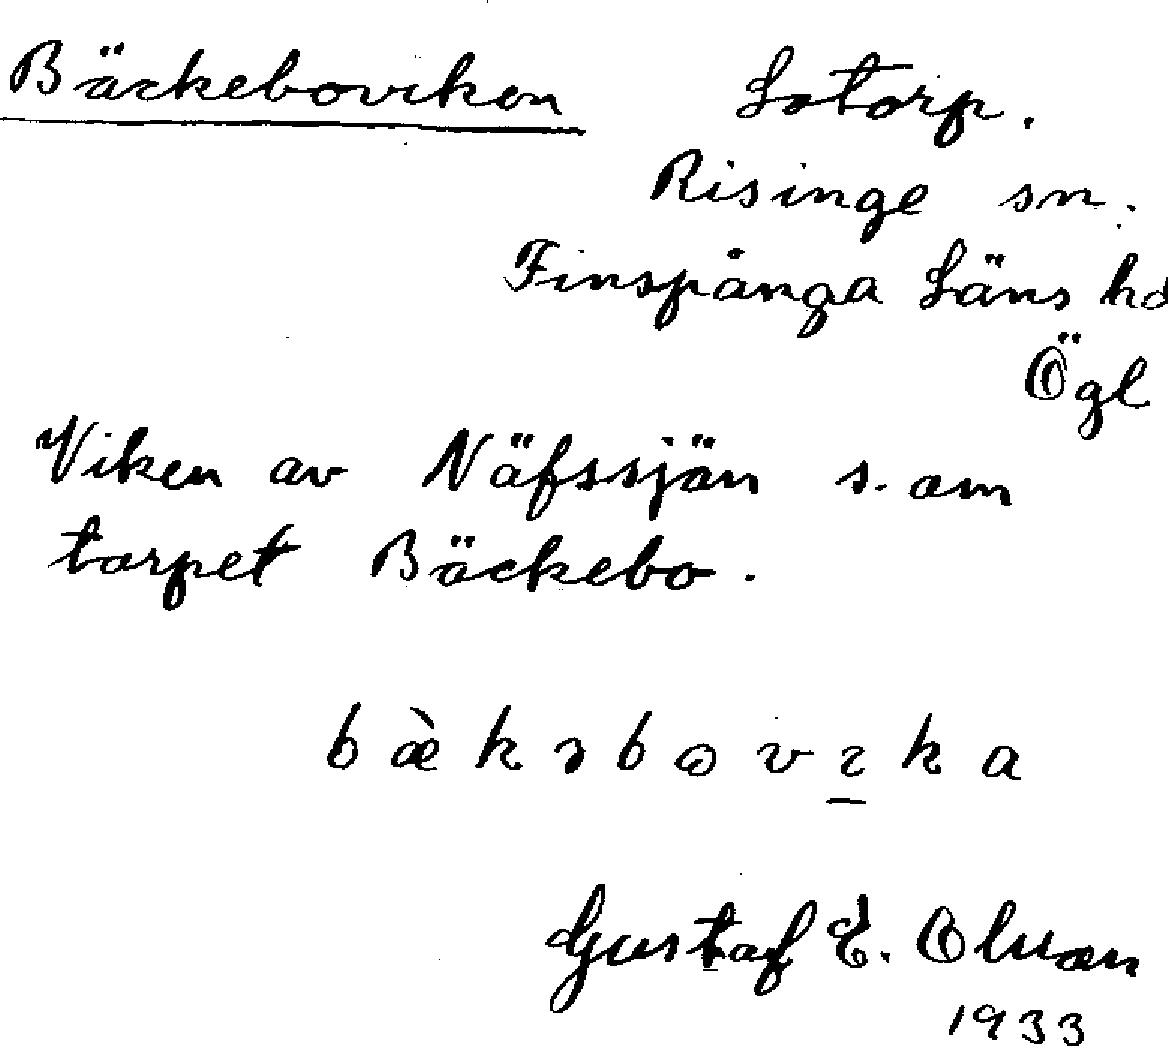 Bäckeboviken Lotorp.
Risinge sn.
Finspånga Läns hd
Ögl
Viken av Näfssjön s. om
torpet Bäckebo.
Gustaf E. Olsson
1933